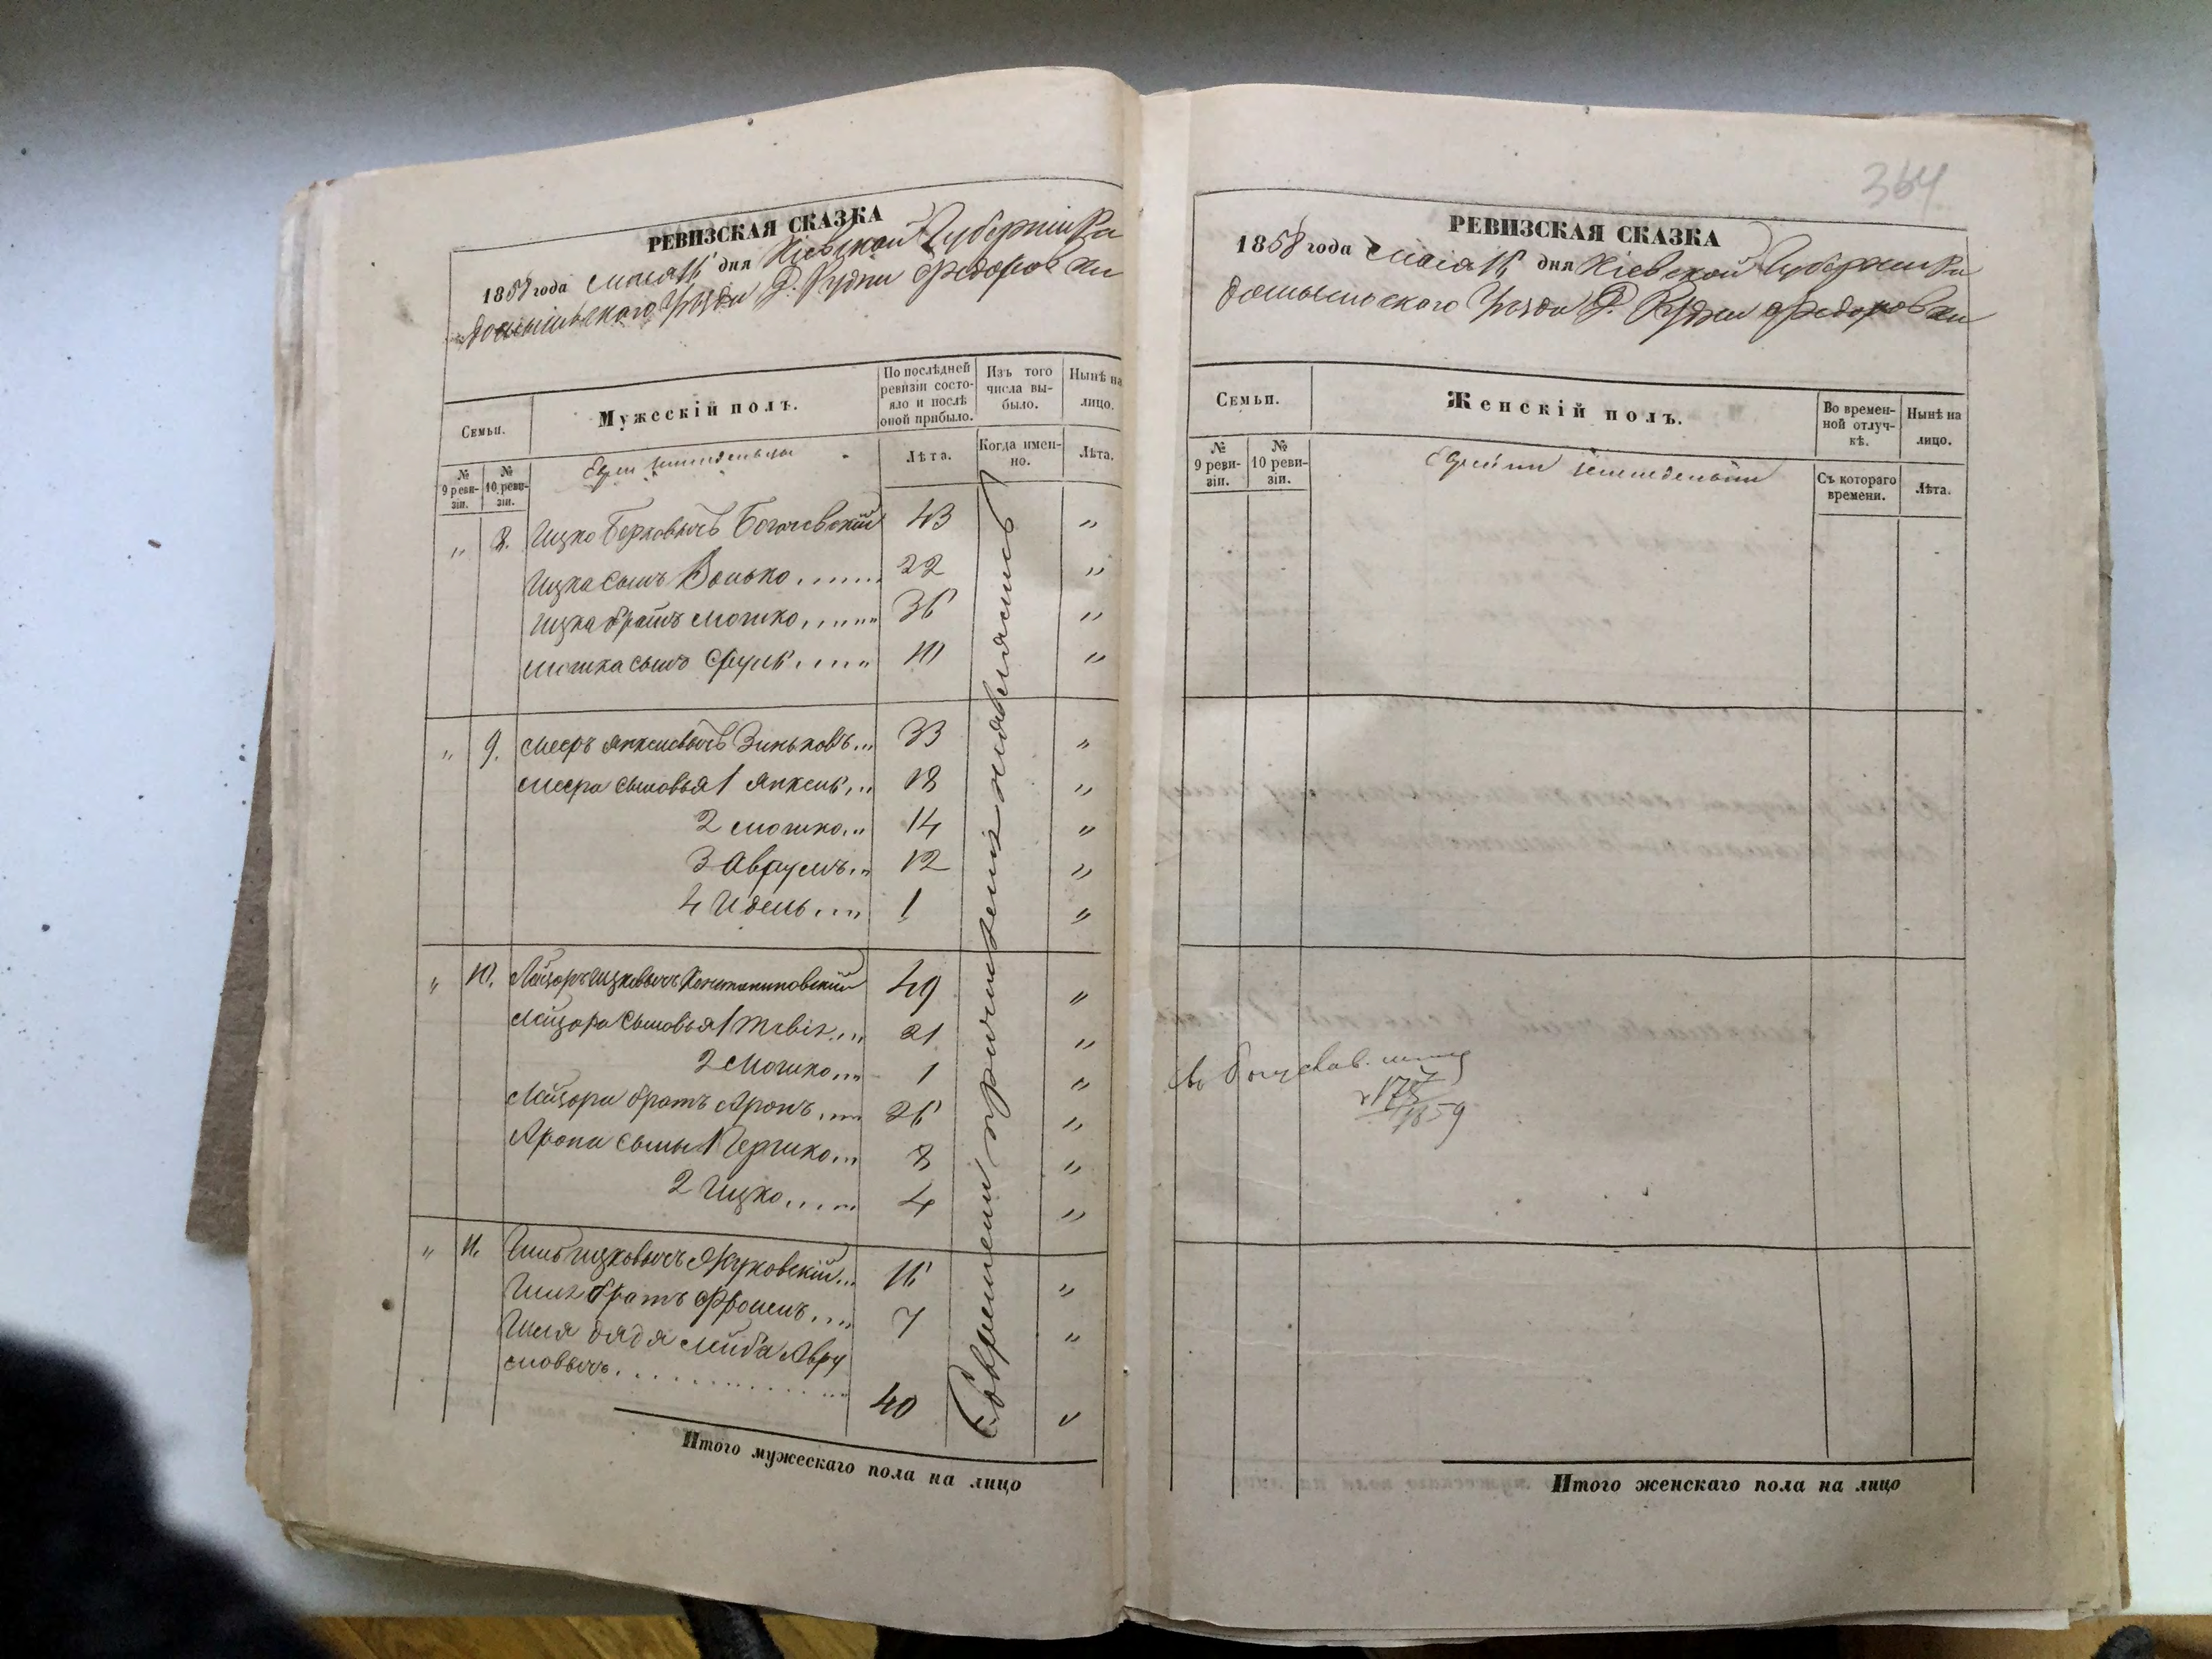 РЕВИЗСКАЯ СКАЗКА
1858 года Мая 16 дня Кіевской Губерніи Ра
домысльского Уѣзда Д. Рудни Федоровки
Семьи.
Мужескій полъ.
По послѣдней ревизіи состояло и послѣ оной прибыло.
Изъ того числа выбыло.
Нынѣ на лицо.
№ 9 ревизіи.
№ 10 ревизіи.
Лѣта.
Когда именно.
Лѣта.
„ 8. Ицко Берковичъ Богачевскій 43 „
Ицка сынъ Волько 22 „
Ицка братъ Мошко 36 „
Мошка сынъ Сруль 10 „
„ 9. Мееръ Янкелевичъ Зиньковъ 33 „
Меера сыновья 1 Янкель 18 „
2 Мошко 14 „
3 Аврумъ 12 „
4 Идель 1 „
„ 10. Лейзоръ Ицковичъ Константиновскій 49 „
Лейзора сыновья 1 21 „
2 Мошко 1 „
Лейзора братъ Аронъ 26 „
Арона сыны 1 Гершко 8 „
2 Ицко 4 „
„ 11. Ицковичъ Жуковскій 16 „
братъ 7 „
дядя Лейба Авру
мовичъ 40 „
Евреи причисленія неявились
Итого мужескаго пола на лицо
364
РЕВИЗСКАЯ СКАЗКА
1858 года Мая 16 дня Кіевской Губерніи Ра
домысльского Уѣзда Д. Рудни Федоровки
Семьи.
Женскій полъ.
Во временной отлучкѣ.
Нынѣ на лицо.
№ 9 ревизіи.
№ 10 ревизіи.
Съ котораго времени.
Лѣта.
1859
Итого женскаго пола на лицо